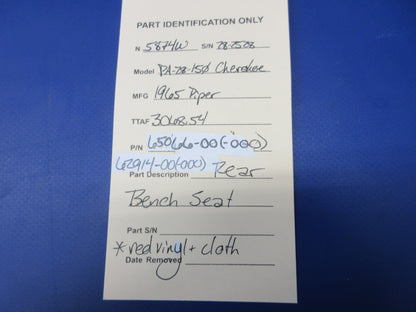 PART IDENTIFICATION ONLY
N 5874W S/N 28-2528
Model PA-28-150 Cherokee
MFG 1965 Piper
TTAF 3068.54
P/N 65066-00(-000)
62914-00(-000)
Part Description Rear
Bench Seat
Part S/N
*red vinyl + cloth
Date Removed